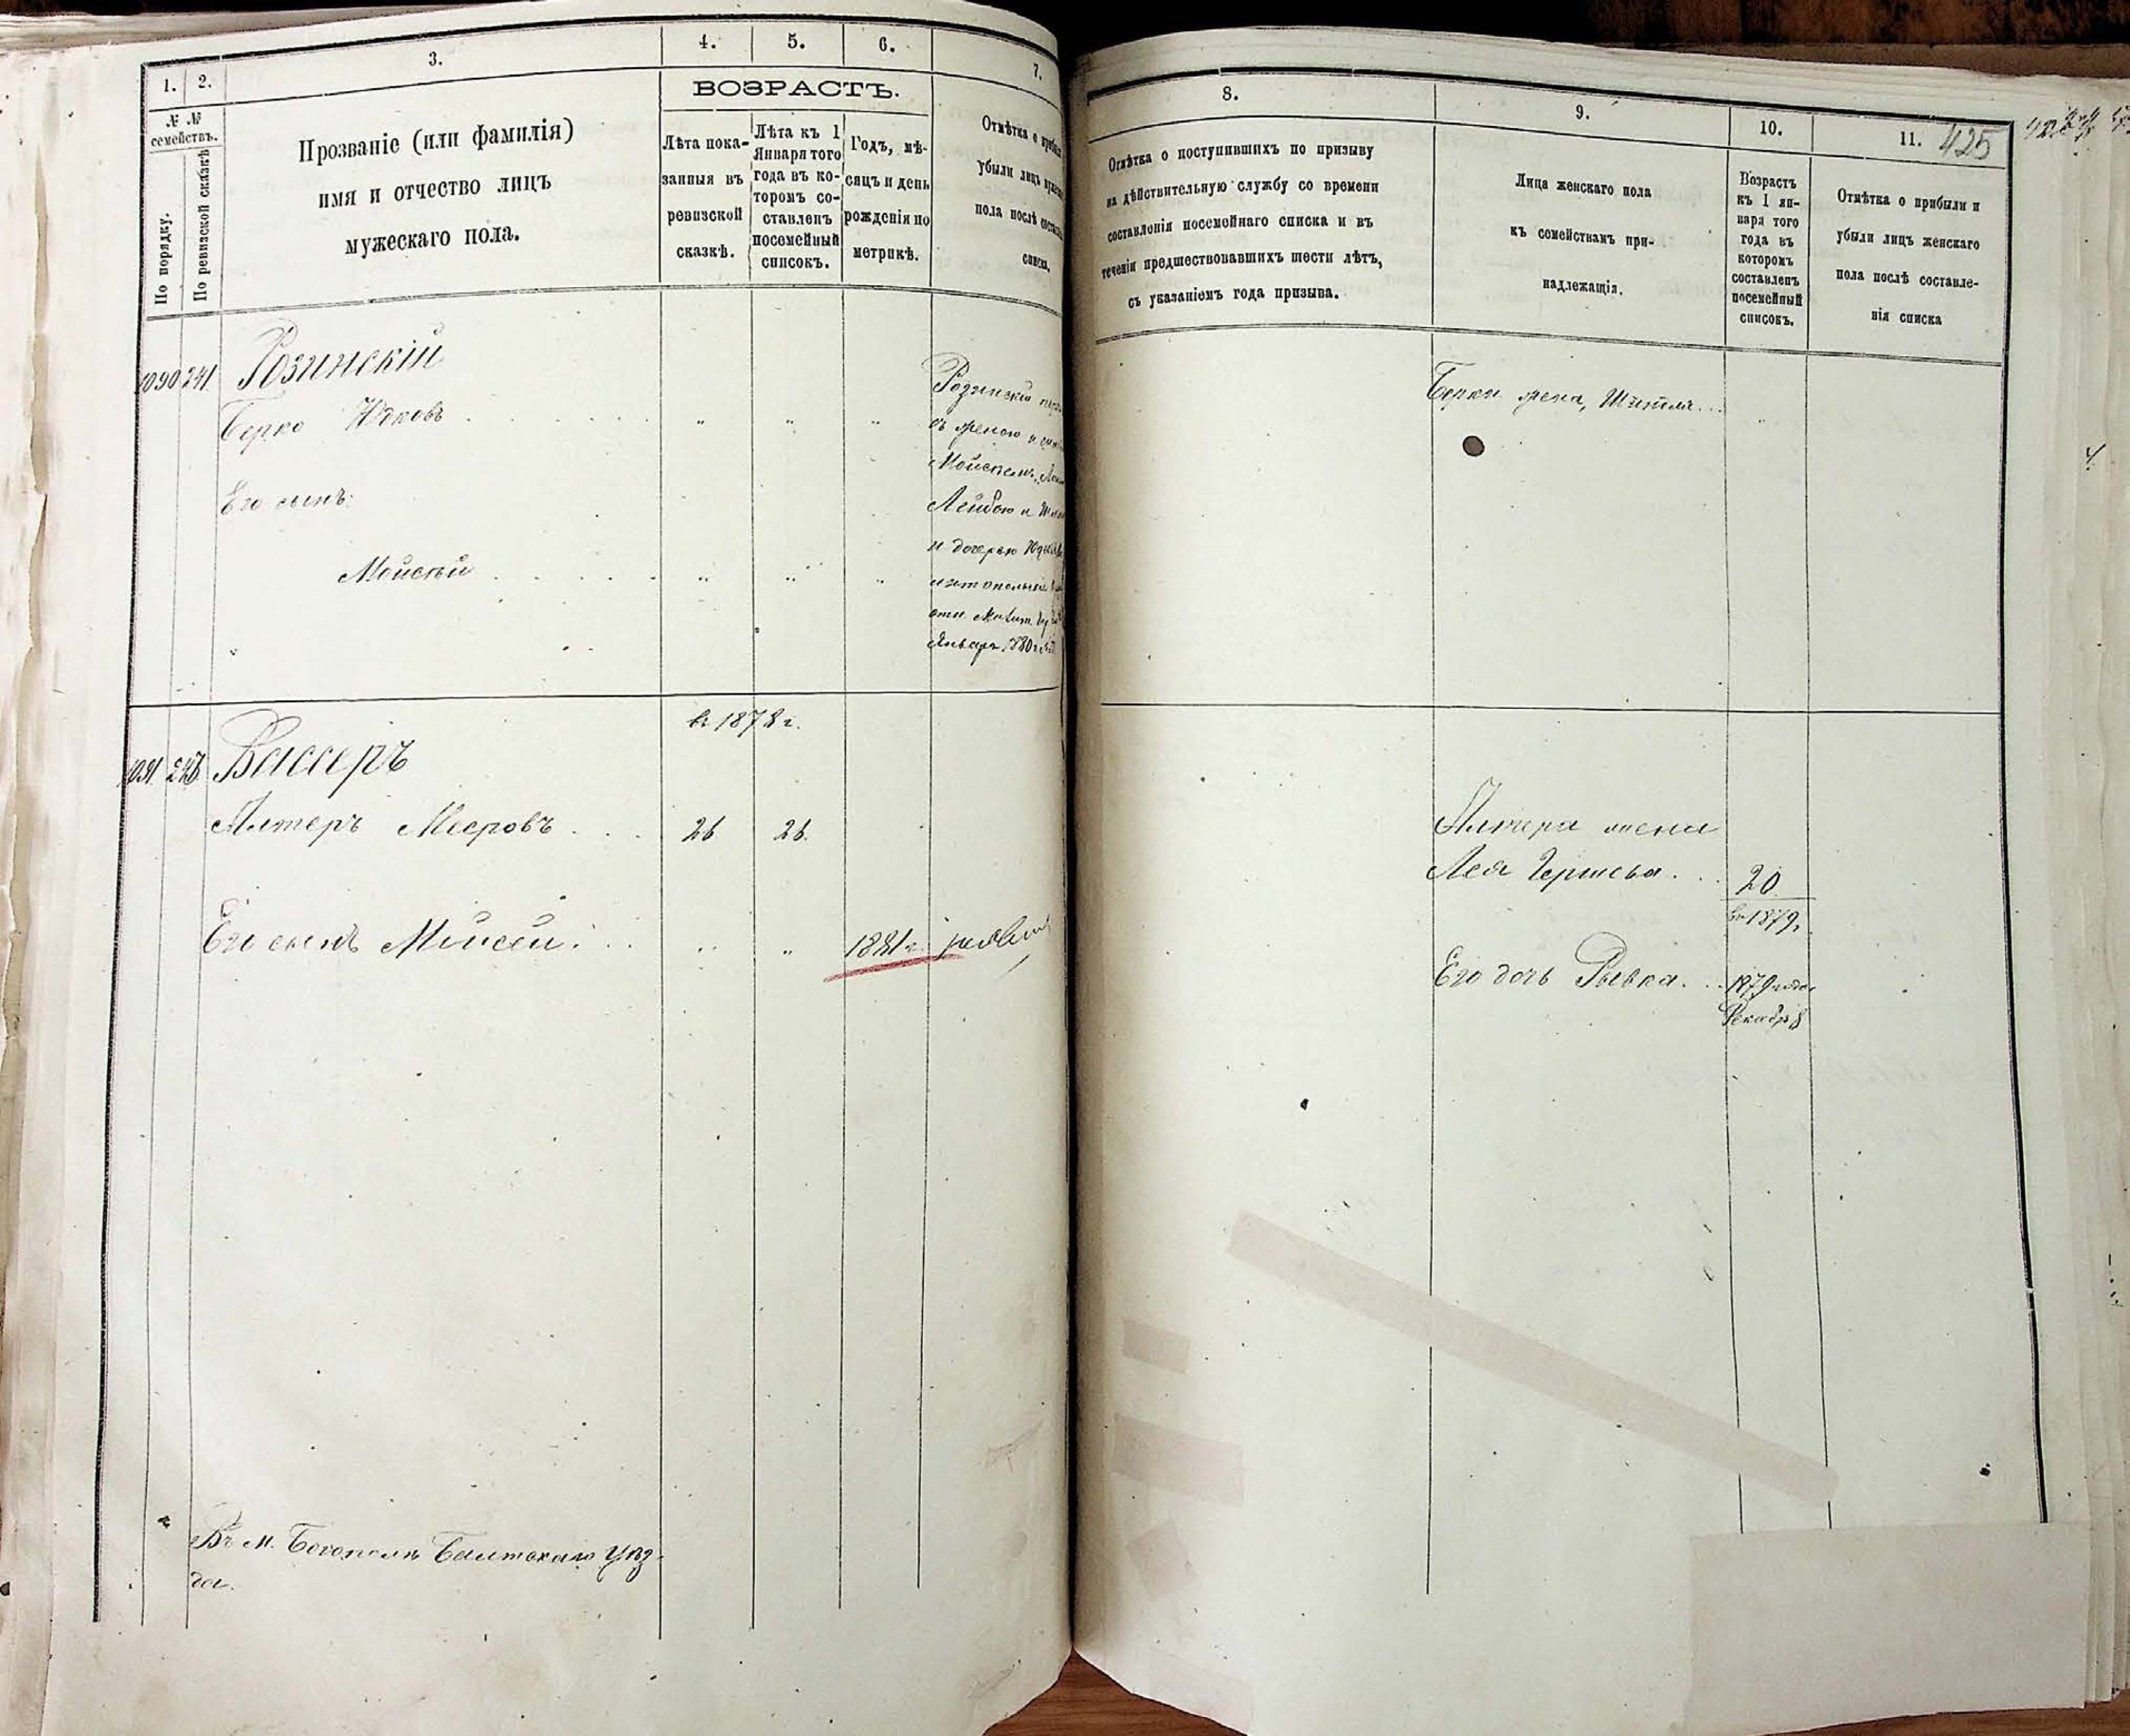 1. 2. 3. 4. 5. 6. 7.
№ №
семействъ.
По порядку.
По ревизской сказкѣ
Прозваніе (или фамилія)
имя и отчество лицъ
мужескаго пола.
ВОЗРАСТЪ.
Лѣта пока-
занныя въ
ревизской
сказкѣ.
Лѣта къ 1
Января того
года въ ко-
торомъ со-
ставленъ
посемейный
списокъ.
Годъ, мѣ-
сяцъ и день
рожденія по
метрикѣ.
Отмѣтка о
убыли лицъ
пола послѣ
списка.
1090 241
Розинскій
Берко Янковъ
Его сынъ:
Мойсей
Розинскій
съ женою и
Лейбою и
и дочерью
Январ. 1880
въ 1878 г.
Вассеръ
Алтеръ Мееровъ . . . 26 26.
Его сынъ Мойсей. 1881 г.
Въ м. Богополѣ Балтскаго Уѣз-
да.
8. 9. 10. 11. 425
Отмѣтка о поступившихъ по призыву
на дѣйствительную службу со времени
составленія посемейнаго списка и въ
теченіи предшествовавшихъ шести лѣтъ,
съ указаніемъ года призыва.
Лица женскаго пола
къ семействамъ при-
надлежащія.
Возрастъ
къ 1 ян-
варя того
года въ
которомъ
составленъ
посемейный
списокъ.
Отмѣтка о прибыли и
убыли лицъ женскаго
пола послѣ составле-
нія списка
Берки жена,
Алтера жена
Лея Гершева . . 20
въ 1879 г.
Его дочь Рывка. . . 1879 года
Декабр. 8